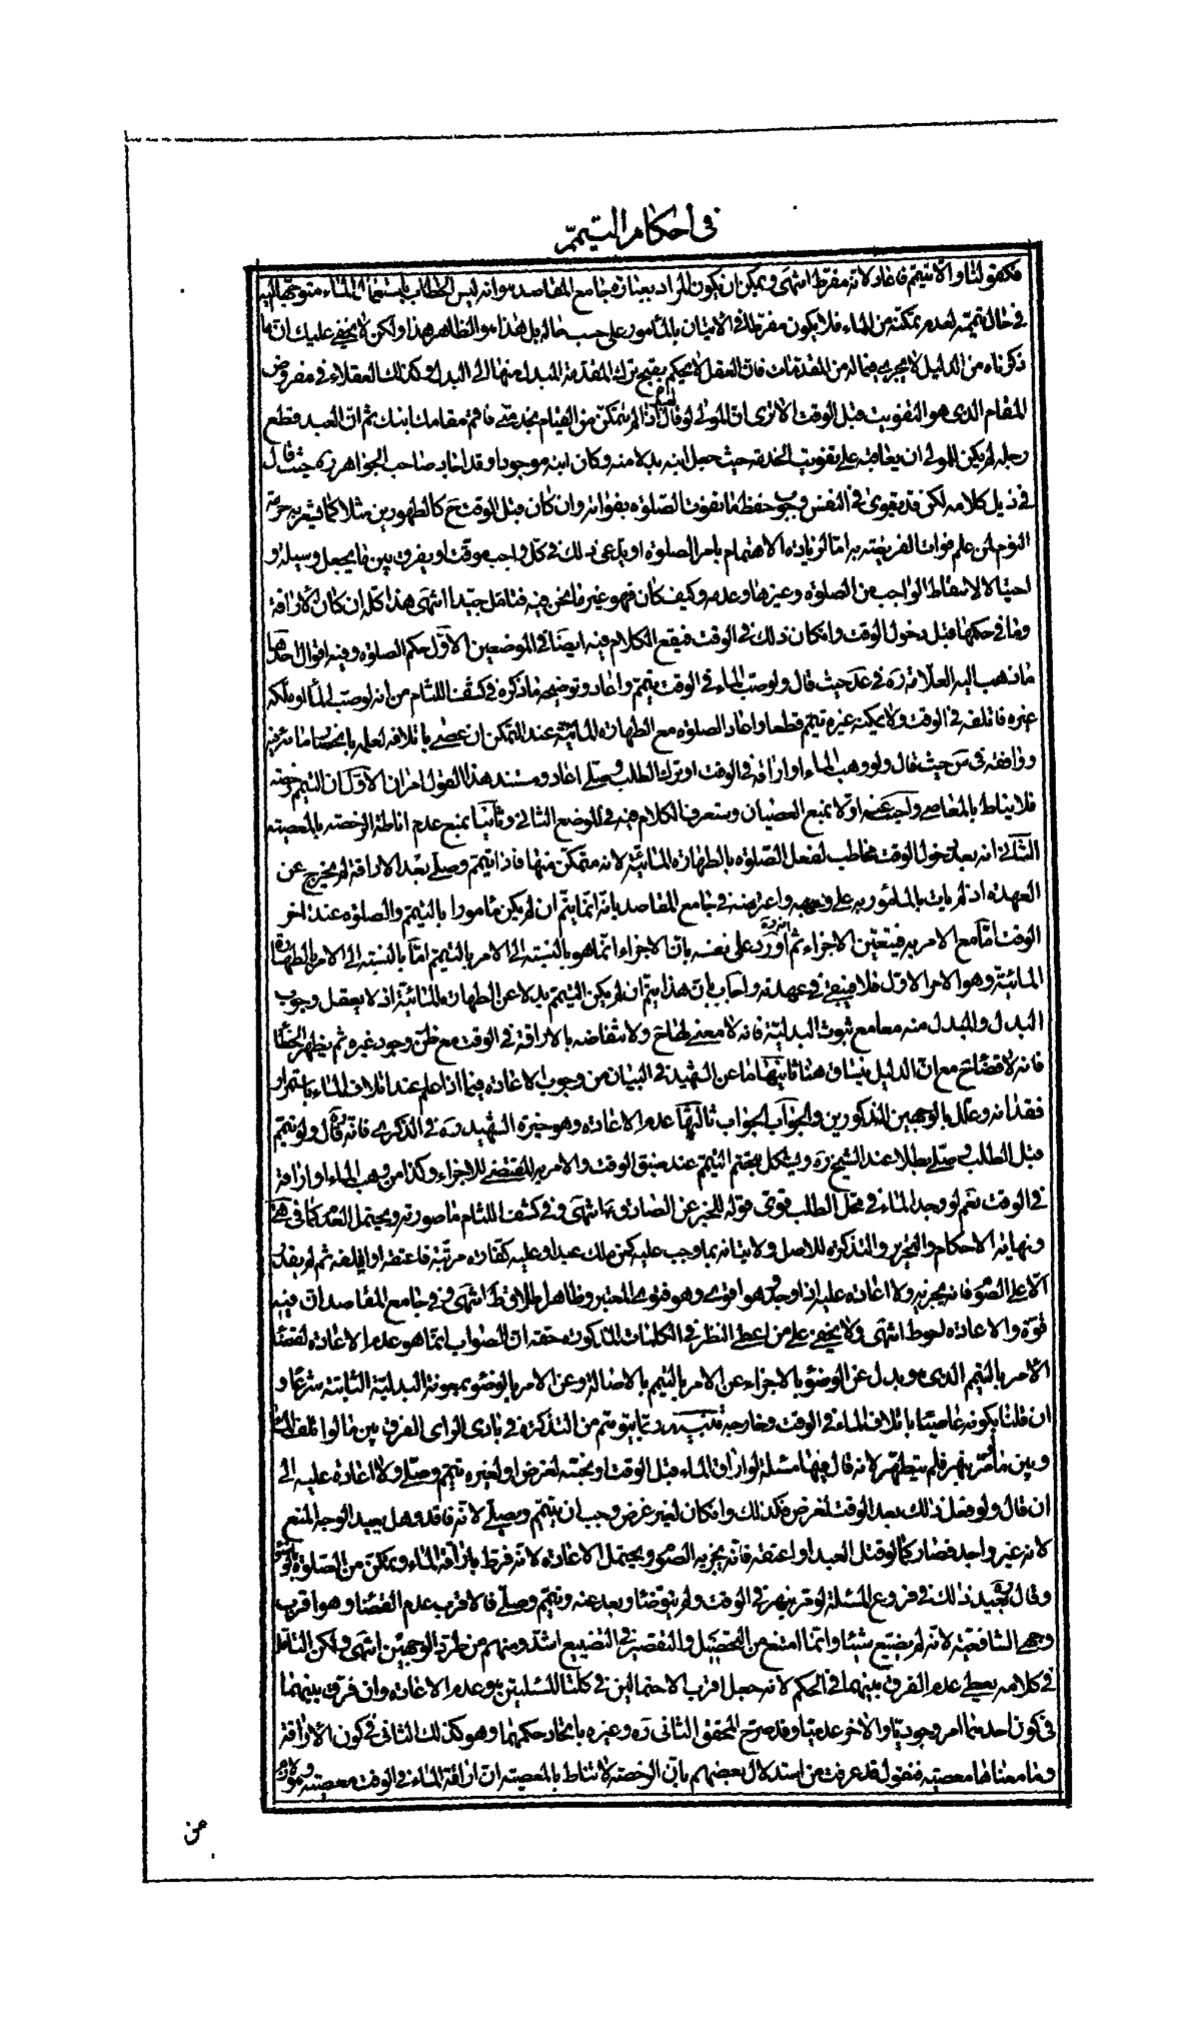 في أحكام التيمم
في حال تيممه لعدم تمكنه من الماء فلا يكون مفرطا في الاتيان بالمأمور على حسب حاله بل هذا هو الظاهر هذا ولكن لا يخفى عليك ان ما
ذكرناه من الدليل لا يجري فيما له من المقدمات فان العقل لا يحكم بقبح ترك المقدمة المبدل منها الى البدل وكذلك العقلاء في مفروض
المقام الذى هو التفويت قبل الوقت الا ترى ان المولى لو قال اذا لم تتمكن من القيام بخدمتي فاقم مقامك ابنك ثم ان العبد قطع
رجله لم يكن للمولى ان يعاقبه على تفويت الخدمة حيث جعل ابنه بدلا منه وكان ابنه موجودا وقد اجاد صاحب الجواهر ره حيث قال
في ذيل كلامه لكن قد يقوى في النفس وجوب حفظ ما تفوت الصلوة بفواته وان كان قبل الوقت ح كالطهورين مثلا كما يشعر به حرمة
النوم لمن علم فوات الفريضة به اما لزيادة الاهتمام بامر الصلوة او يدعى ذلك في كل واجب موقت او يفرق بين ما يجعل وسيلة و
احتيالا لاسقاط الواجب من الصلوة وغيرها وعدمه وكيف كان فهو غير ما نحن فيه فتامل جيدا انتهى هذا كله ان كان الاراقة
وما في حكمها قبل دخول الوقت وان كان ذلك في الوقت فيقع الكلام فيه ايضا في الموضعين الاول حكم الصلوة وفيه اقوال احدها
ما ذهب اليه العلامة ره في عد حيث قال ولو صب الماء في الوقت تيمم واعاد وتوضيحه ما ذكره في كشف اللثام من انه لو صب الماء او ملكه
غيره فاتلفه في الوقت ولا يمكنه غيره تيمم قطعا واعاد الصلوة مع الطهارة المائية عند التمكن ان عصى باتلافه لعلمه بانحصار
ووافقه في س حيث قال ولو وهب الماء او اراقه في الوقت او ترك الطلب وصلى اعاد ومستند هذا القول امران الاول ان التيمم رخصة
فلا يناط بالمعاصي واجيب عنه اولا بمنع العصيان وستعرف الكلام فيه في الموضع الثاني وثانيا بمنع عدم اناطة الرخصة بالمعصية
الثاني انه بعد دخول الوقت مخاطب لفعل الصلوة بالطهارة المائية لانه متمكن منها فاذا تيمم وصلى بعد الاراقة لم يخرج عن
العهدة اذ لم يات بالمأمور به على وجهه واعترضه في جامع المقاصد بانه انما يتم ان لم يكن مأمورا بالتيمم والصلوة عند اخر
الوقت اما مع الامر به فيتعين الاجزاء ثم اورد على نفسه بان الاجزاء انما هو بالنسبة الى الامر بالتيمم اما بالنسبة الى الامر بالطهارة
المائية وهو الامر الاول فلا فيبقى في عهدته واجاب بان هذا يتم ان لم يكن التيمم بدلا عن الطهارة المائية اذ لا يعقل وجوب
البدل والمبدل منه معا مع ثبوت البدلية
فانه لا قضاء ح مع ان الدليل ينساق هنا ثانيها ما عن الشهيد في البيان من وجوب الاعادة فيما اذا علم عند اتلاف الماء باستمرار
فقدانه وعلل بالوجهين المذكورين والجواب الجواب ثالثها عدم الاعادة وهو خيرة الشهيد ره في الذكرى فانه قال ولو تيمم
قبل الطلب وصلى بطلا عند الشيخ ره ويشكل بتحتم التيمم عند ضيق الوقت والامر به المقتضى للاجزاء وكذا من وهب الماء او اراقه
في الوقت نعم لو وجد الماء في محل الطلب قوى قوله للخبر عن الصادق ع انتهى وفي كشف اللثام ما صورته ويحتمل العدم كما في هى
ونهاية الاحكام والتحرير والتذكرة للاصل ولاتيانه بما وجب عليه كمن ملك عبدا وعليه كفارة مرتبة فاعتقه او اتلفه ثم لم يقدر
الا على الصوم فانه يجزيه ولا اعادة عليه اذا وجد وهو اقوى وهو فتوى المعتبر وظاهر انتهى وفي جامع المقاصد ان فيه
قوة والاعادة احوط انتهى ولا يخفى على من اعطى النظر في الكلمات المذكورة حقه ان الصواب انما هو عدم الاعادة لاقتضاء
الامر بالتيمم الذى هو بدل عن الوضوء بالاجزاء عن الامر بالتيمم بالاصالة وعن الامر بالوضوء بمعونة البدلية الثابتة شرعا و
ان قلنا بكونه عاصيا باتلاف الماء في الوقت وخارجه تنبيه ربما يتوهم من التذكرة في بادى الراى الفرق بين ما لو اتلف الماء
وبين ما مر بنهر فلم يتطهر لانه قال فيها مسئلة لو اراق الماء قبل الوقت او نجسه لغرض او لغيره تيمم وصلى ولا اعادة عليه الى
ان قال ولو فعل ذلك بعد الوقت لغرض فكذلك وان كان لغير غرض وجب ان يتيمم ويصلى لانه فاقد وهل يعيد الوجه المنع
لانه غير واجد فصار كما لو قتل العبد او اعتقه فانه يجزيه الصوم ويحتمل الاعادة لانه فرط باراقة الماء وتمكن من الصلوة بالوضوء
وقال بعيد ذلك في فروع المسئلة لو مر بنهر في الوقت ولم يتوضأ وبعد عنه وتيمم وصلى فالاقرب عدم القضاء وهو اقرب
وجهى الشافعية لانه لم يضيع شيئا وانما امتنع من التحصيل والتقصير في التضييع اشد ومنهم من طرد الوجهين انتهى ولكن التأمل
في كلامه يعطى عدم الفرق بينهما في الحكم لانه جعل اقرب الاحتمالين في كلتا المسئلتين هو عدم الاعادة وان فرق بينهما
في كون احدهما امر وجوديا والاخر عدميا وقد صرح المحقق الثانى ره وغيره باتحاد حكمهما وهو كذلك الثاني في كون الاراقة
وما معناها معصية فنقول قد عرفت من استدلال بعضهم بان الرخصة لا تناط بالمعصية ان اراقة الماء في الوقت معصية
من